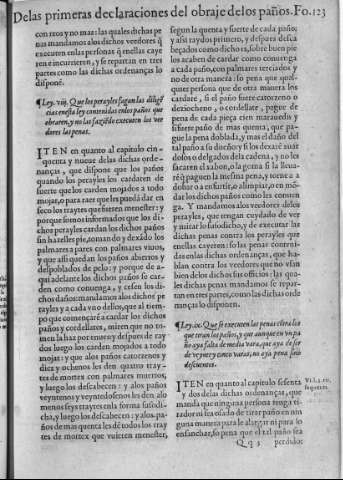 De las primeras declaraciones del obraje de los paños. Fo. 123
con tra
ñas mandamos alos dichos veedores q̃
executen en las personas q̃ en ellas caye
en e incurrieren, y se repartan en tres
partes como las dichas ordenanças lo
disponẽ.
¶Ley. viij. Que los perayles hagan las diligẽ
cias en esta ley contenidas en los paños que
obraren, y no las faziẽdo executen los vee
dores las penas.
ITEN en quanto al capitulo cin-
quenta y nueue delas dichas orde-
nanças, que dispone que los paños
quando los perayles los cardaren de
suerte que los carden mojados a todo
mojar, o para raez que les pueda dar en
seco los traytes que fueren menester: y
porque somos informados que los di-
chos perayles cardan los dichos paños
sin hazerles pie, tomando y dexãdo los
palmares a pares con palmares viuos,
y que assi quedan los paños abiertos y
despoblados de pelo: y porque de a-
qui adelante los dichos paños se car-
den como conuenga, y cessen los di-
chos daños: mandamos alos dichos pe
rayles y a cada vno dellos, que al tiem
po que començarẽ a cardar los dichos
paños y cordellates, miren que no to-
men la haz por enues y despues de ray
dos luego los carden mojados a todo
mojar: y que alos paños catorzenos y
diez y ochenos les den quatro tray-
tes de mortex con palmares muertos,
y luego los descabecen: y alos paños
veyntenos y veyntedosenos les den alo
menos seys traytes en la forma susodi-
cha, y luego los descabecen: y alos pa-
ños de mas quenta les dẽ todos los tray
tes de mortex que vuieren menester,
segun la quenta y suerte de cada paño;
y assi raydos primero, y despues desca
beçados como dicho es, sobre buen pie
los acaben de cardar como conuenga
a cada paño, con palmares terciados y
no de otra manera: so pena que qual-
quier persona que de otra manera los
cardare, si el paño fuere catorzeno o
dieziocheno, o cordellate, pague de
pena de cada pieça cien marauedis y
si fuere paño de mas quenta, que pa-
gue la pena doblada, y mas el daño del
tal paño a su dueño y si los dexarẽ auar
dolos o delgados dela cadena, y no les
sacaren el algodon, o la goma si la lleua
rẽ q̃ paguen la mesma pena, y tornen a
dobar o a enfurtir, o alimpiar, o en mẽ-
dar los dichos paños como les conuen
ga. Y mandamos alos veedores delos
perayles, que tengan cuydado de ver
y mirar lo susodicho, y de executar las
dichas penas contra los perayles que
en ellas cayeren: so las penas conteni-
das en las dichas ordenanças, que ha-
blan contra los veedores que no vsan
bien delos dichos sus officios: las qua-
les dichas penas mandamos se repar-
tan en tres partes, como las dichas orde
nanças lo disponen.
¶Ley. ix. Que se executen las penas cõtra los
que tiran los paños, y que aunque en vn pa
ño aya falta de media vara, que aya de ser
de veynte y cinco varas, no aya pena sino
descuento.
ITEN en quanto al capitulo sesenta
y dos delas dichas ordenanças, que
manda que ninguna persona tenga ti-
rador ni sea osado de tirar paño en nin
guna manera para le alargar ni para lo
ensanchar, so pena que el tal paño sea
Q q 3 perdido: